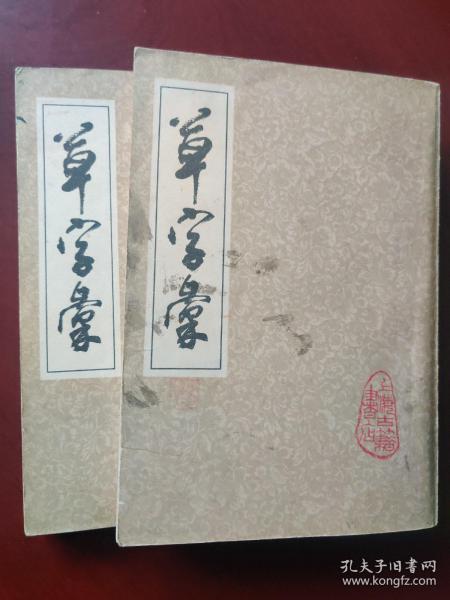 草字彙
草字彙
上海古籍
書店
孔夫子旧书网
www.kongfz.com